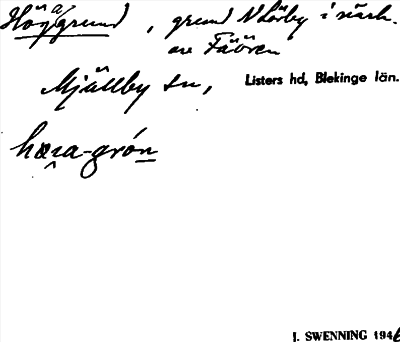 Högagrund, grund N Lörby i närh.
av Fäören
Mjällby sn, Listers hd, Blekinge län.
hœra-grón
J. SWENNING 1946